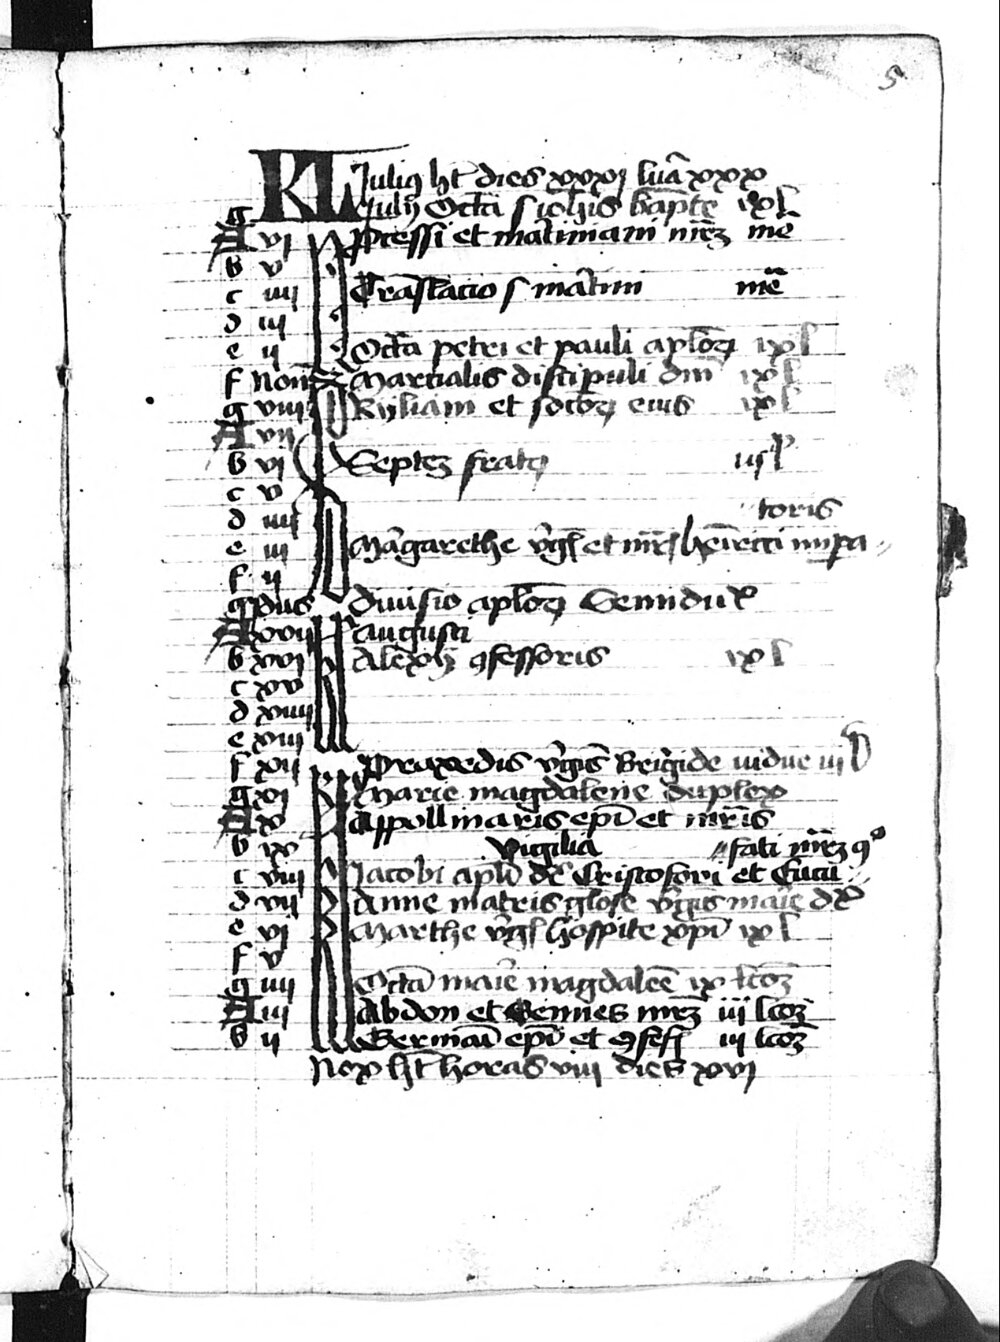 5
KL Julius ht dies xxxj luna xxx
g Julii Octa s iohis bapte ixl
A vj Processi et martiniani mrm me
b v
c iiij Traslatio s martini me
d iij
e ij Octa petri et pauli aplorum ixl
f Non Martialis discipuli dni ixl
g viij Kyliani et sociorum eius ixl
A vij
b vj Septem fratrum iij
c v
d iiij toris
e iij Margarethe virgis et mris henrici impa
f ij
g Idus Divisio aplorum Semiduplex
A xvij augusti
b xvj Alexii confessoris ixl
c xv
d xiiij
e xiij
f xij Praxedis virgis Brigide vidue iij
g xj Marie magdalene duplex
A x Appollinaris epi et mris
b ix Vigilia fati mrm
c viij Jacobi apli dx Cristofori et Cucu
d vij Anne matris glose virgis marie dx
e vj Marthe virgis hospite xpi ixl
f v
g iiij Octa marie magdalene ix lcom
A iij Abdon et Sennes mrm iij lcom
b ij Germani epi et confess iij lcom
Nox ht horas viij dies xvj